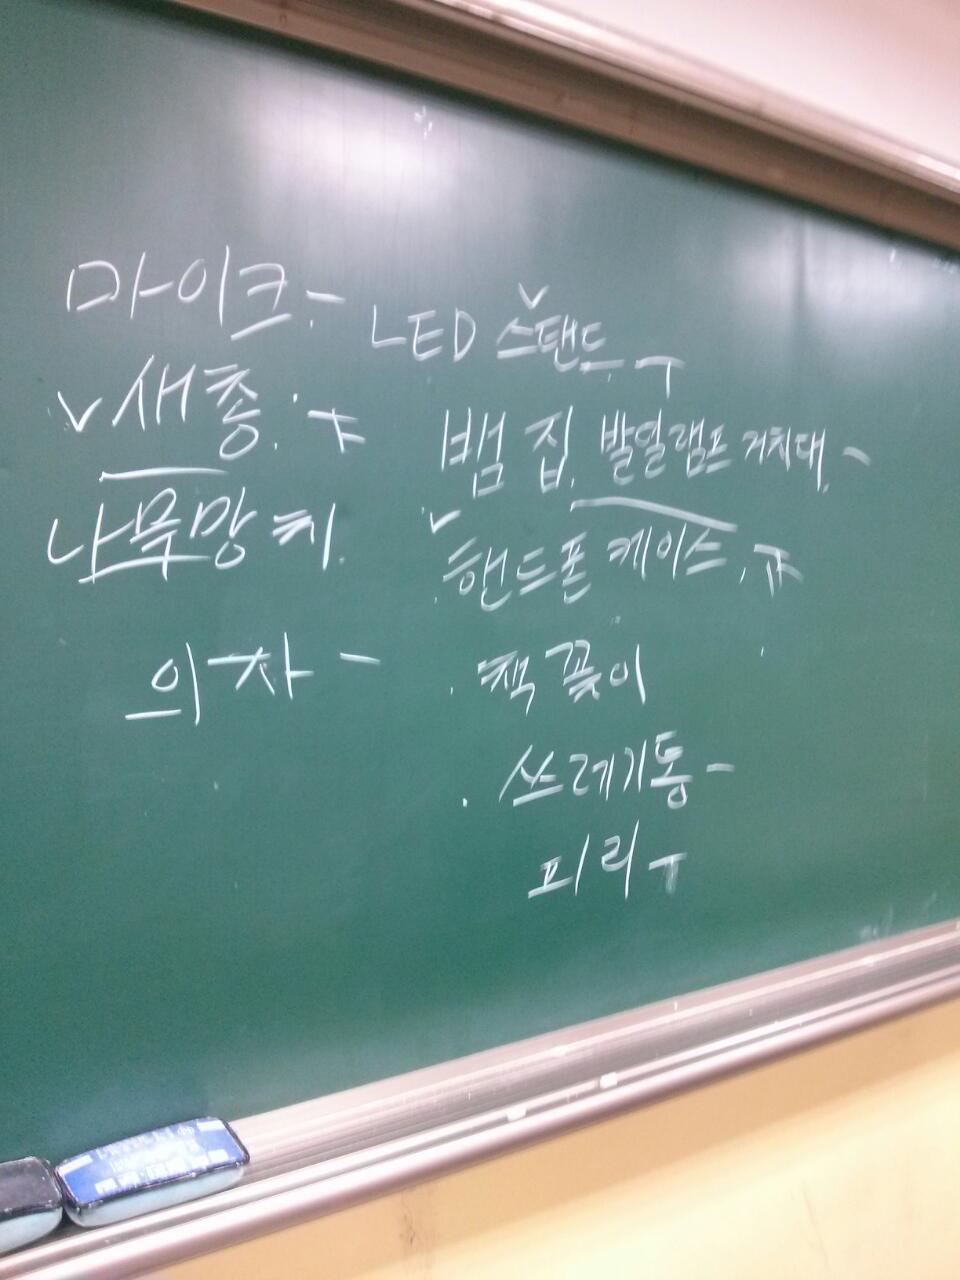 마이크.
새총.
나무망치.
의자
LED 스탠드
뱀 집 발열램프 거치대
핸드폰 케이스
책꽂이
쓰레기통
피리